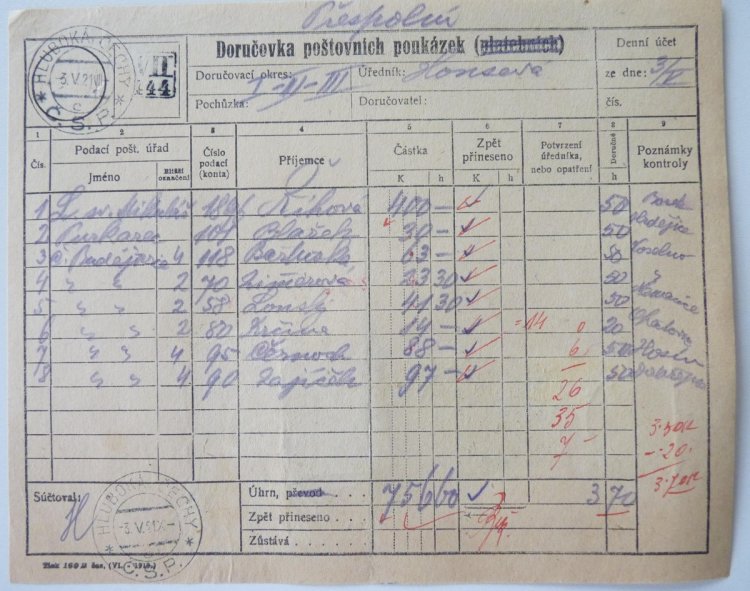 Přespolní
HLUBOKÁ, ČECHY
3.V.21
c
* Č.S.P. *
VII
*44
Doručovka poštovních poukázek (platebních)
Denní účet
Doručovací okres: I-II-III Úředník: Honsova
ze dne: 3/V
Pochůzka: Doručovatel:
čís.
1 2 3 4 5 6 7 8 9
Čís. Podací pošt. úřad Číslo podací (konta) Příjemce Částka Zpět přineseno Potvrzení úředníka, nebo opatření Doručné Poznámky kontroly
Jméno Bližší označení K h K h h
1 1896 Říhová 400 — 50
2 101 Blažek 30 — 50
3 Č. Budějovice 4 118 63 — 50
4 " " 2 70 23 30 50
5 " " 2 58 Lonský 41 30 50
6 " " 2 80 14 — =14 20
7 " " 4 95 Černoch 88 — 6 50
8 " " 4 90 Zajíček 97 — 50
26
35
7 —
— 20
Súčtoval: Úhrn, převod 756 60 3 70
Zpět přineseno
Zůstává
HLUBOKÁ, ČECHY
3.V.21
* Č.S.P. *
Tisk 160 D čes. (VI. - 1919.)